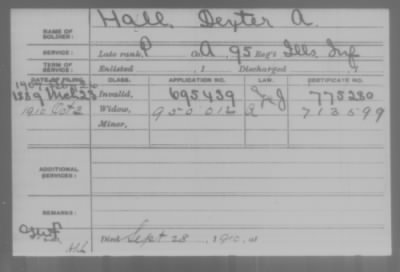 NAME OF SOLDIER: Hall, Dexter A.
SERVICE: Late rank, P Co. A, 95 Reg't Ills. Inf
TERM OF SERVICE: Enlisted , 1 Discharged , 1
DATE OF FILING. CLASS. APPLICATION NO. LAW. CERTIFICATE NO.
1889 Mch 23 Invalid, 695439 775280
1910 Oct 2 Widow, 950 012 713599
Minor,
ADDITIONAL SERVICES:
REMARKS:
Died Sept 28, 1910, at